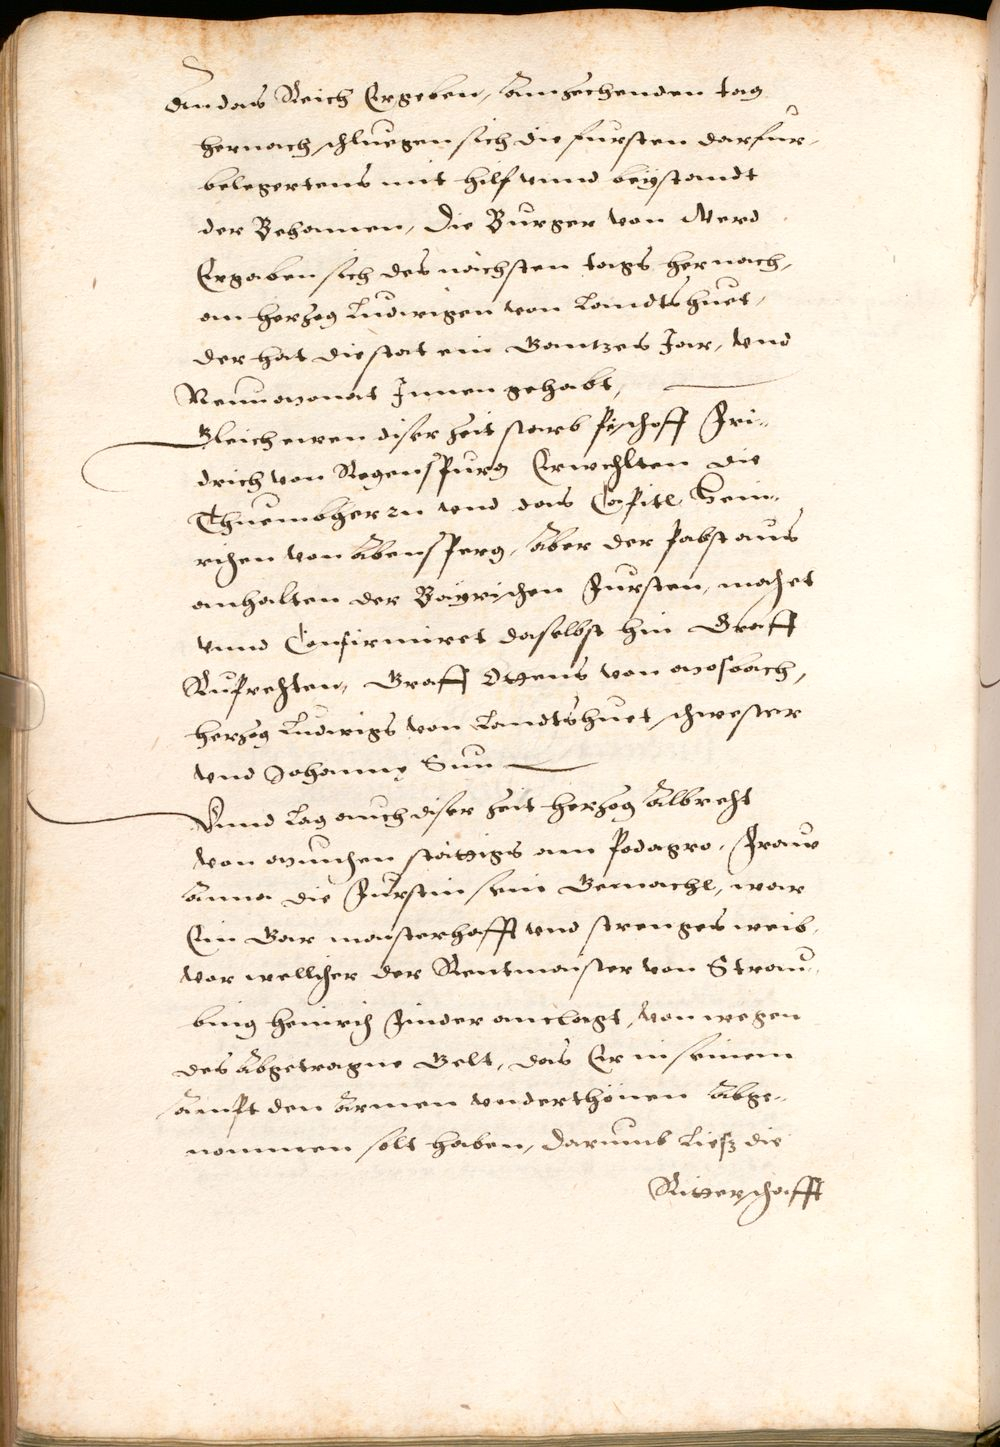 An das Reich Ergeben, Am sechenden tag
hernach schluegen sich die fursten darfur,
belegertens mit hilf vnnd beystandt
der Behamen, Die Burger von Werd
Ergaben sich des nächsten tags hernach,
an herzog Ludwigen von Landtshuet,
der hat die stat ein Gantzes Jar, vnd
Neun monat Innen gehabt,
Gleich ewen diser zeit starb Pischoff Fri-
drich von Regenspurg Erwehlten die
Thuembherrn vnd das Capitl Hein-
richen von Abensperg, Aber der Pabst aus
anhalten der Bayrischen Fursten, machet
vnnd Confirmiret daselbst hin Graff
Ruprehten, Graff Ottens von Mosbach,
herzog Ludwigs von Landtshuet schwester
vnd Johanny Sun
Vnnd lag auch diser zeit herzog Albrecht
von Munchen stättigs am Podagra, Fraw
Anna die Furstin sein Gemachl, war
Ein Gar maisterhafft vnd strenges weib,
vor wellicher der Rentmaister von Strau-
bing Heinrich Finder anclagt, von wegen
des Abgetragne Gelt, das Er in seinem
Ampt den Armen vnderthonen Abge-
nommen solt haben, darumb liesz die
Ritterschafft